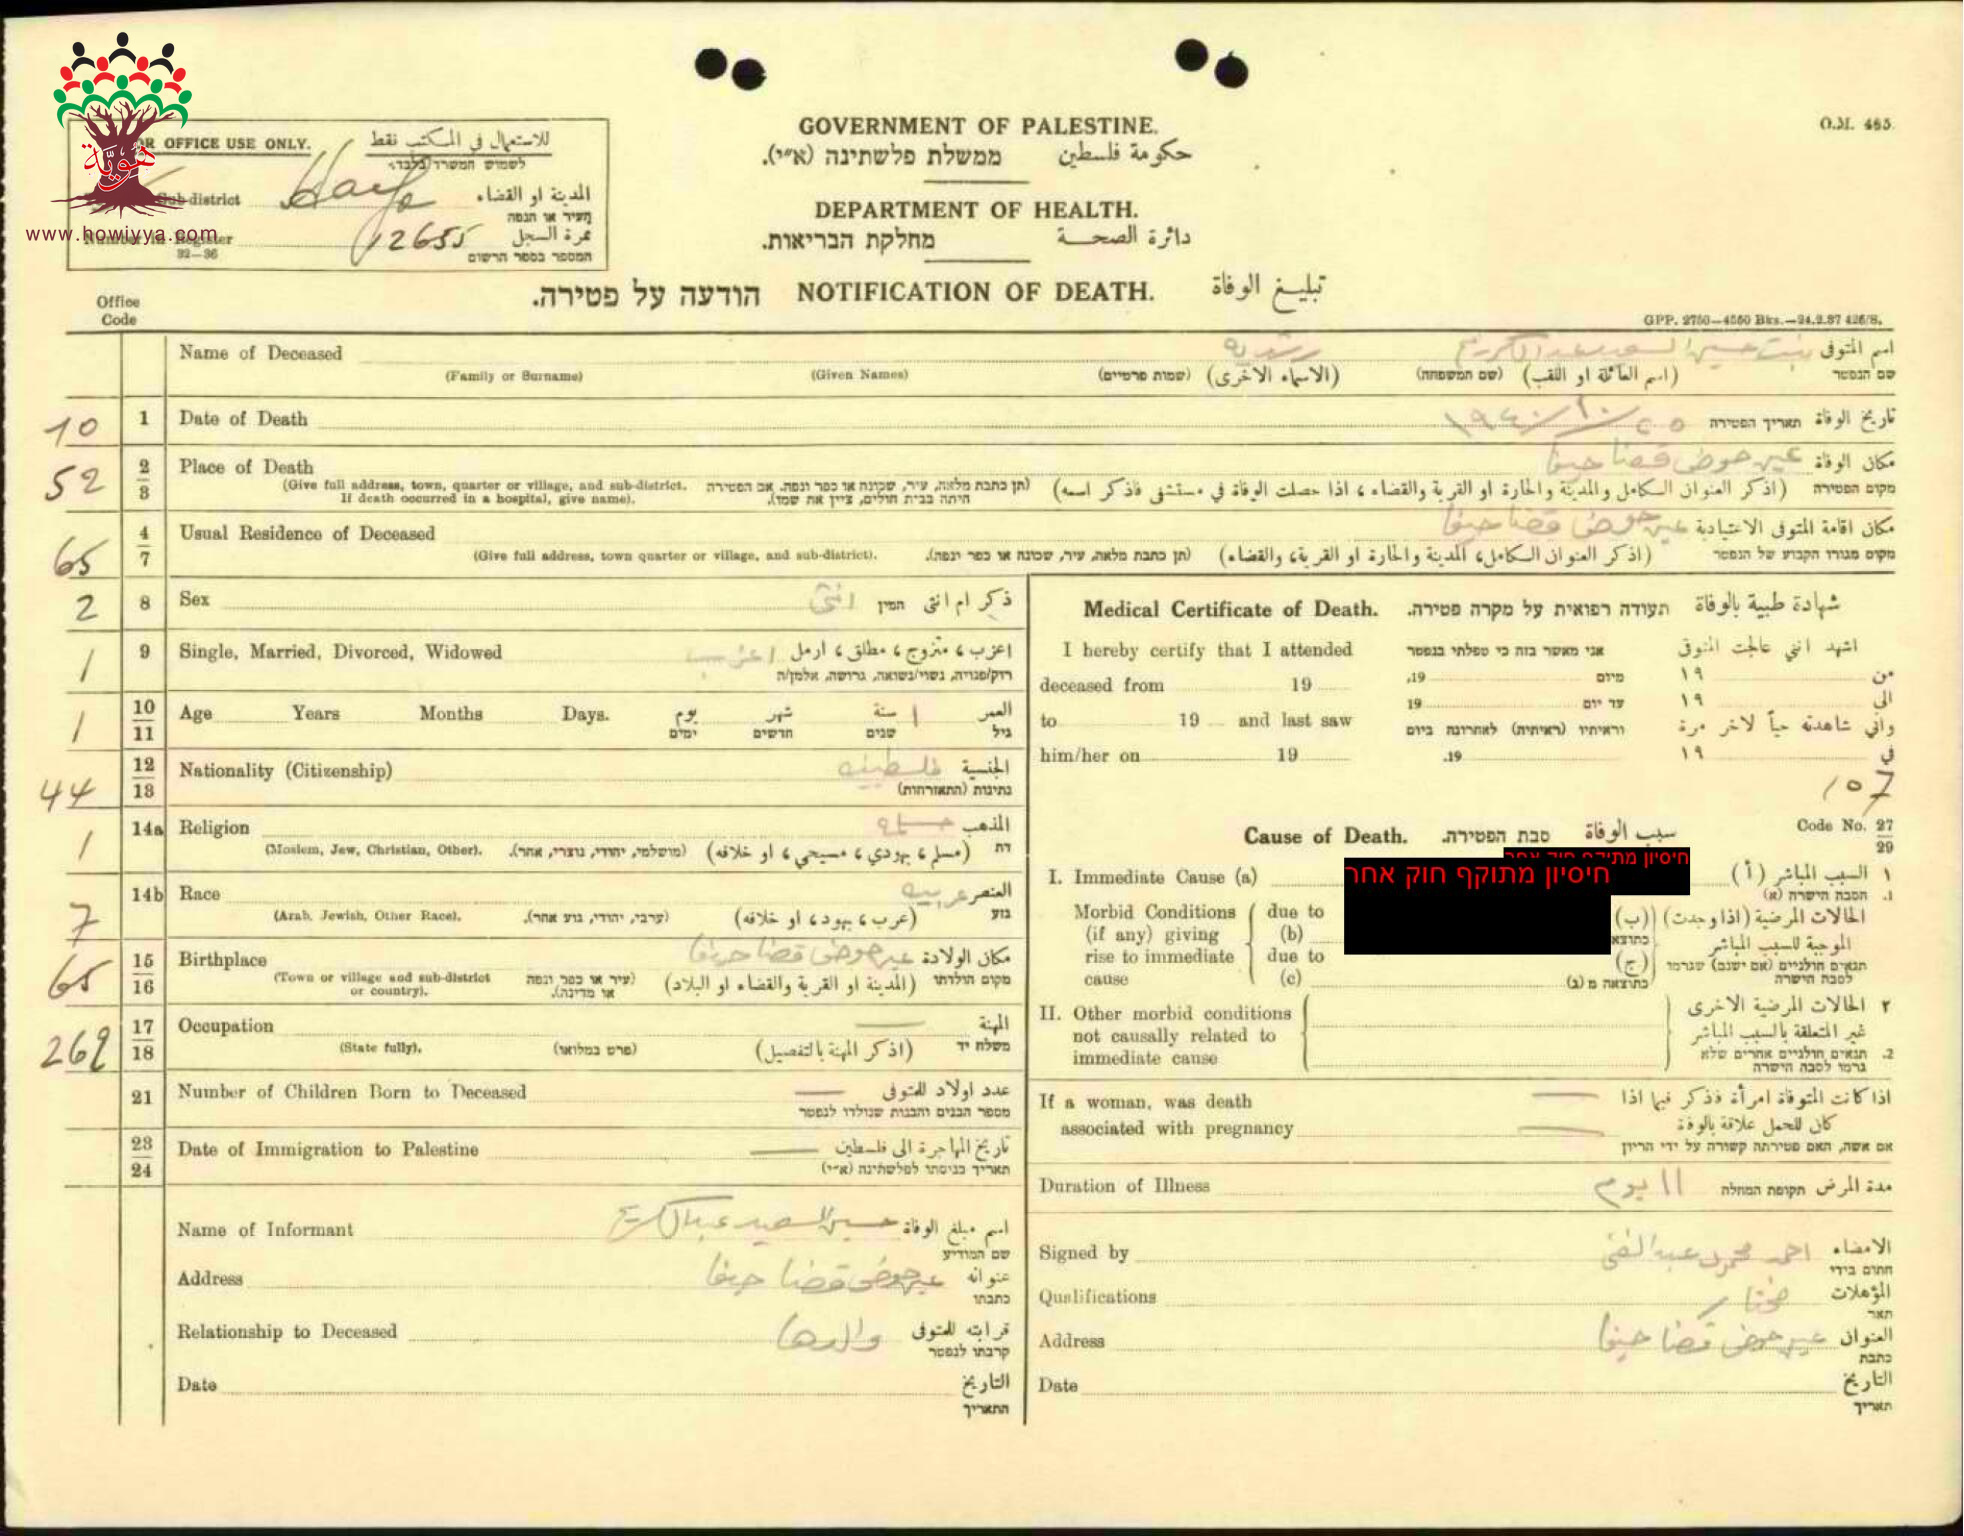 O.M. 465.
GOVERNMENT OF PALESTINE.
حكومة فلسطين ממשלת פלשתינה (א״י).
DEPARTMENT OF HEALTH.
دائرة الصحة מחלקת הבריאות.
תבליغ الوفاة NOTIFICATION OF DEATH. הודעה על פטירה.
OR OFFICE USE ONLY. للاستعمال في المكتب نقط
לשמוש המשרד בלבד
هوية
Sub-district Haifa المدينة او القضاء
העיר או הנפה
www.howiyya.com
Number in Register 12655 نمرة السجل
המספר בספר הרשום
32—36
Office Code
GPP. 2750—4550 Bks.—24.2.37 426/S.
Name of Deceased رشديه بنت حسين السعيد عبد الكريم اسم المتوفى
שם הנפטר
(Family or Surname) (Given Names) (שמות פרטיים) (الاسماء الاخرى) (שם המשפחה) (اسم العائلة او اللقب)
10 1 Date of Death ١٩٤٠/١٠/٢٥ תאריך הפטירה تاريخ الوفاة
52 2/3 Place of Death عين حوض قضا حيفا مكان الوفاة
(Give full address, town, quarter or village, and sub-district. If death occurred in a hospital, give name).
(תן כתבת מלאה, עיר, שכונה או כפר ונפה. אם הפטירה היתה בבית חולים, ציין את שמו).
(اذكر العنوان الكامل والمدينة والحارة او القرية والقضاء، اذا حصلت الوفاة في مستشفى فاذكر اسمه) מקום הפטירה
65 4/7 Usual Residence of Deceased عين حوض قضا حيفا مكان اقامة المتوفى الاعتيادية
(Give full address, town quarter or village, and sub-district). (תן כתבת מלאה, עיר, שכונה או כפר ונפה). (اذكر العنوان الكامل، المدينة والحارة او القرية، والقضاء) מקום מגורו הקבוע של הנפטר
2 8 Sex انثى המין ذكر ام انثى
1 9 Single, Married, Divorced, Widowed اعزب اعزب، متزوج، مطلق، ارمل
רוק/פנויה, נשוי/נשואה, גרושה, אלמן/ה
1 10/11 Age Years Months Days. يوم شهر سنة ١ العمر
ימים חדשים שנים גיל
44 12/13 Nationality (Citizenship) فلسطينيه الجنسية
נתינות (התאזרחות)
1 14a Religion مسلمه المذهب
(Moslem, Jew, Christian, Other). (מושלמי, יהודי, נוצרי, אחר). (مسلم، يهودي، مسيحي، او خلافه) דת
7 14b Race عربيه العنصر
(Arab, Jewish, Other Race). (ערבי, יהודי, גזע אחר). (عرب، يهود، او خلافه) גזע
65 15/16 Birthplace عين حوض قضا حيفا مكان الولادة
(Town or village and sub-district or country). (עיר או כפר ונפה או מדינה). (المدينة او القرية والقضاء او البلاد) מקום הולדתו
262 17/18 Occupation — المهنة
(State fully). (פרט במלואו) (اذكر المهنة بالتفصيل) משלח יד
21 Number of Children Born to Deceased — عدد اولاد للمتوفى
מספר הבנים והבנות שנולדו לנפטר
23/24 Date of Immigration to Palestine — تاريخ المهاجرة الى فلسطين
תאריך כניסתו לפלשתינה (א״י)
Name of Informant حسين السعيد عبد الكريم اسم مبلغ الوفاة
שם המודיע
Address عين حوض قضا حيفا عنوانه
כתבתו
Relationship to Deceased والدها قرابته للمتوفى
קרבתו לנפטר
Date التاريخ
התאריך
Medical Certificate of Death. תעודה רפואית על מקרה פטירה. شهادة طبية بالوفاة
I hereby certify that I attended אני מאשר בזה כי טפלתי בנפטר اشهد انني عالجت المتوفى
deceased from 19 מיום 19, من ١٩
to 19 and last saw עד יום 19 الى ١٩
וראיתיו (ראיתיה) לאחרונה ביום واني شاهدته حياً لاخر مرة
him/her on 19 19. في ١٩
107
Code No. 27/29
Cause of Death. סבת הפטירה. سبب الوفاة
I. Immediate Cause (a) חיסיון מתוקף חוק אחר חיסיון מתוקף חוק אחר السبب المباشر (أ) ١
הסבה הישרה (א) 1.
Morbid Conditions (if any) giving rise to immediate cause
due to (b)
due to (c)
(ب) الحالات المرضية (اذا وجدت) الموجبة للسبب المباشر
(ج) תנאים חולניים (אם ישנם) שגרמו לסבה הישרה
כתוצאה מ (ג)
II. Other morbid conditions not causally related to immediate cause
٢ الحالات المرضية الاخرى غير المتعلقة بالسبب المباشر
2. תנאים חולניים אחרים שלא גרמו לסבה הישרה
If a woman, was death associated with pregnancy — — اذا كانت المتوفاة امرأة فذكر فيما اذا كان للحمل علاقة بالوفاة
אם אשה, האם פטירתה קשורה על ידי הריון
Duration of Illness ١١ يوم תקופת המחלה مدة المرض
Signed by احمد محمود عبد الغني الامضاء
חתום בידי
Qualifications مختار المؤهلات
תאר
Address عين حوض قضا حيفا العنوان
כתבת
Date التاريخ
תאריך